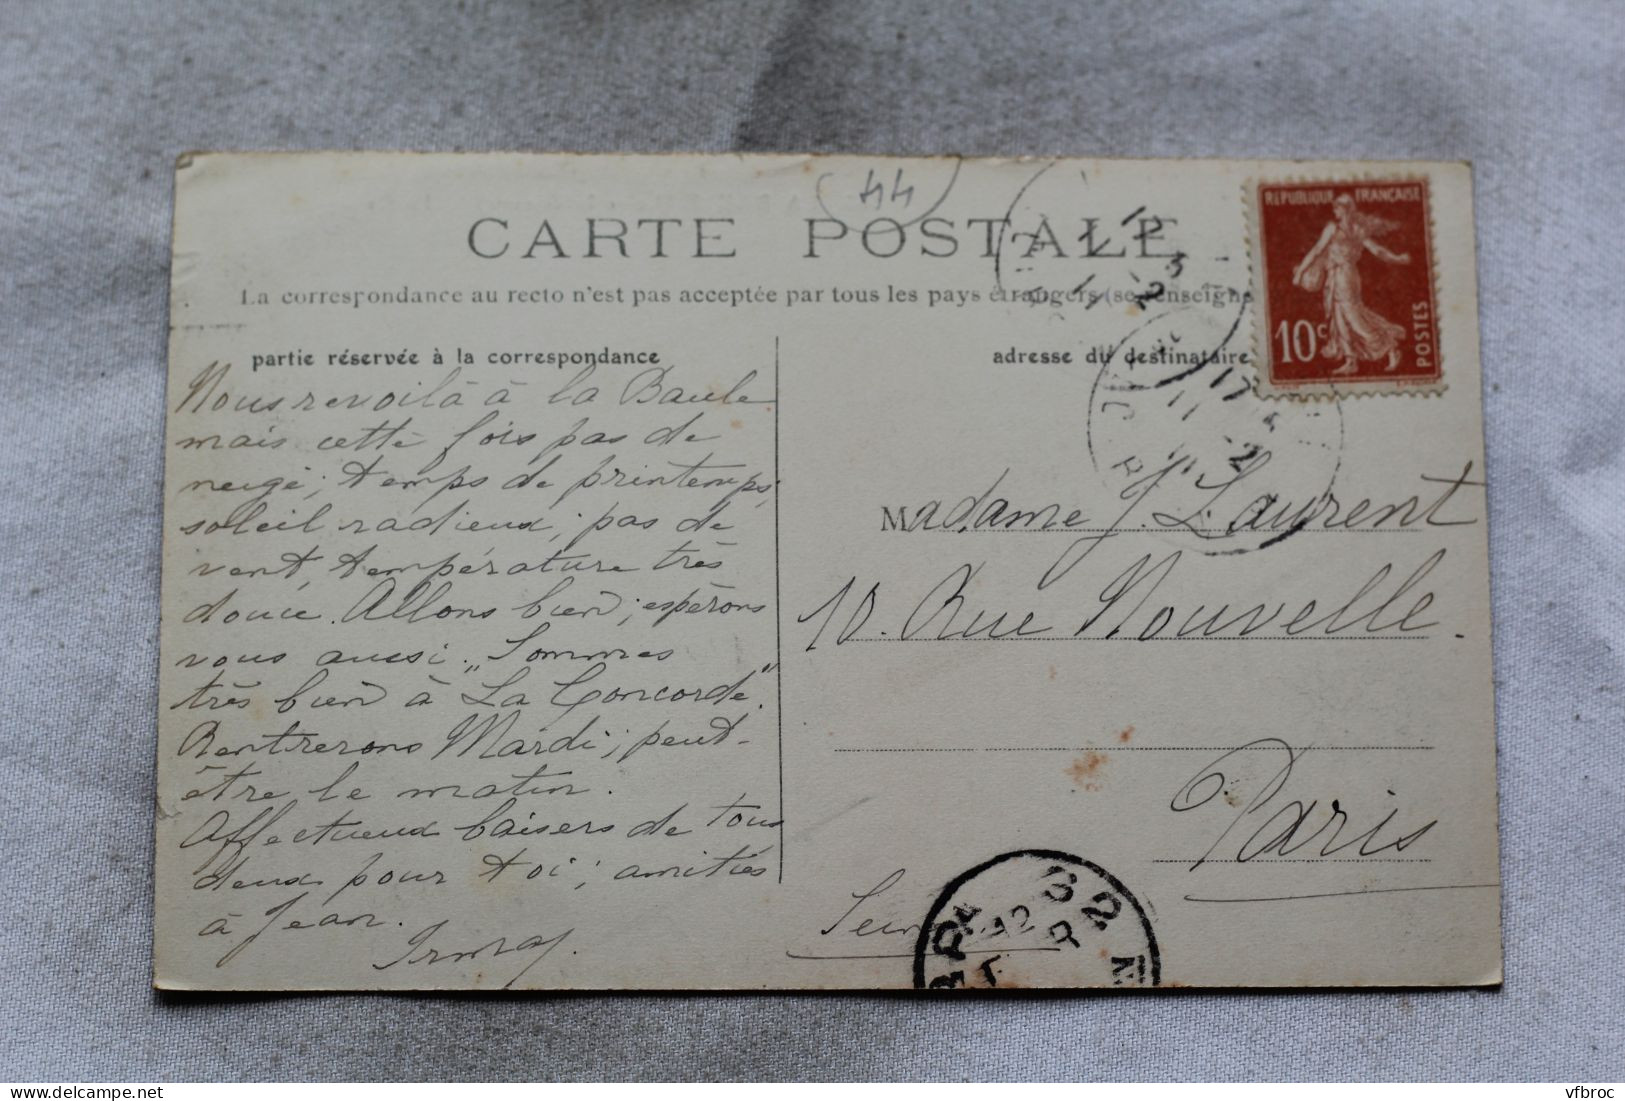 44
CARTE POSTALE
La correspondance au recto n'est pas acceptée par tous les pays étrangers (se renseigne
RÉPUBLIQUE FRANÇAISE
10c
POSTES
partie réservée à la correspondance
adresse du destinataire
Nous revoilà à la Baule
mais cette fois pas de
neige; temps de printemps;
soleil radieux; pas de
vent, température très
douce. Allons bien; espérons
vous aussi. Sommes
très bien à "La Concorde".
Rentrerons Mardi; peut-
être le matin.
Affectueux baisers de tous
deux pour toi; amitiés
à Jean.
Irma
Madame J. Laurent
10. Rue Nouvelle.
Paris
Seine
vfbroc